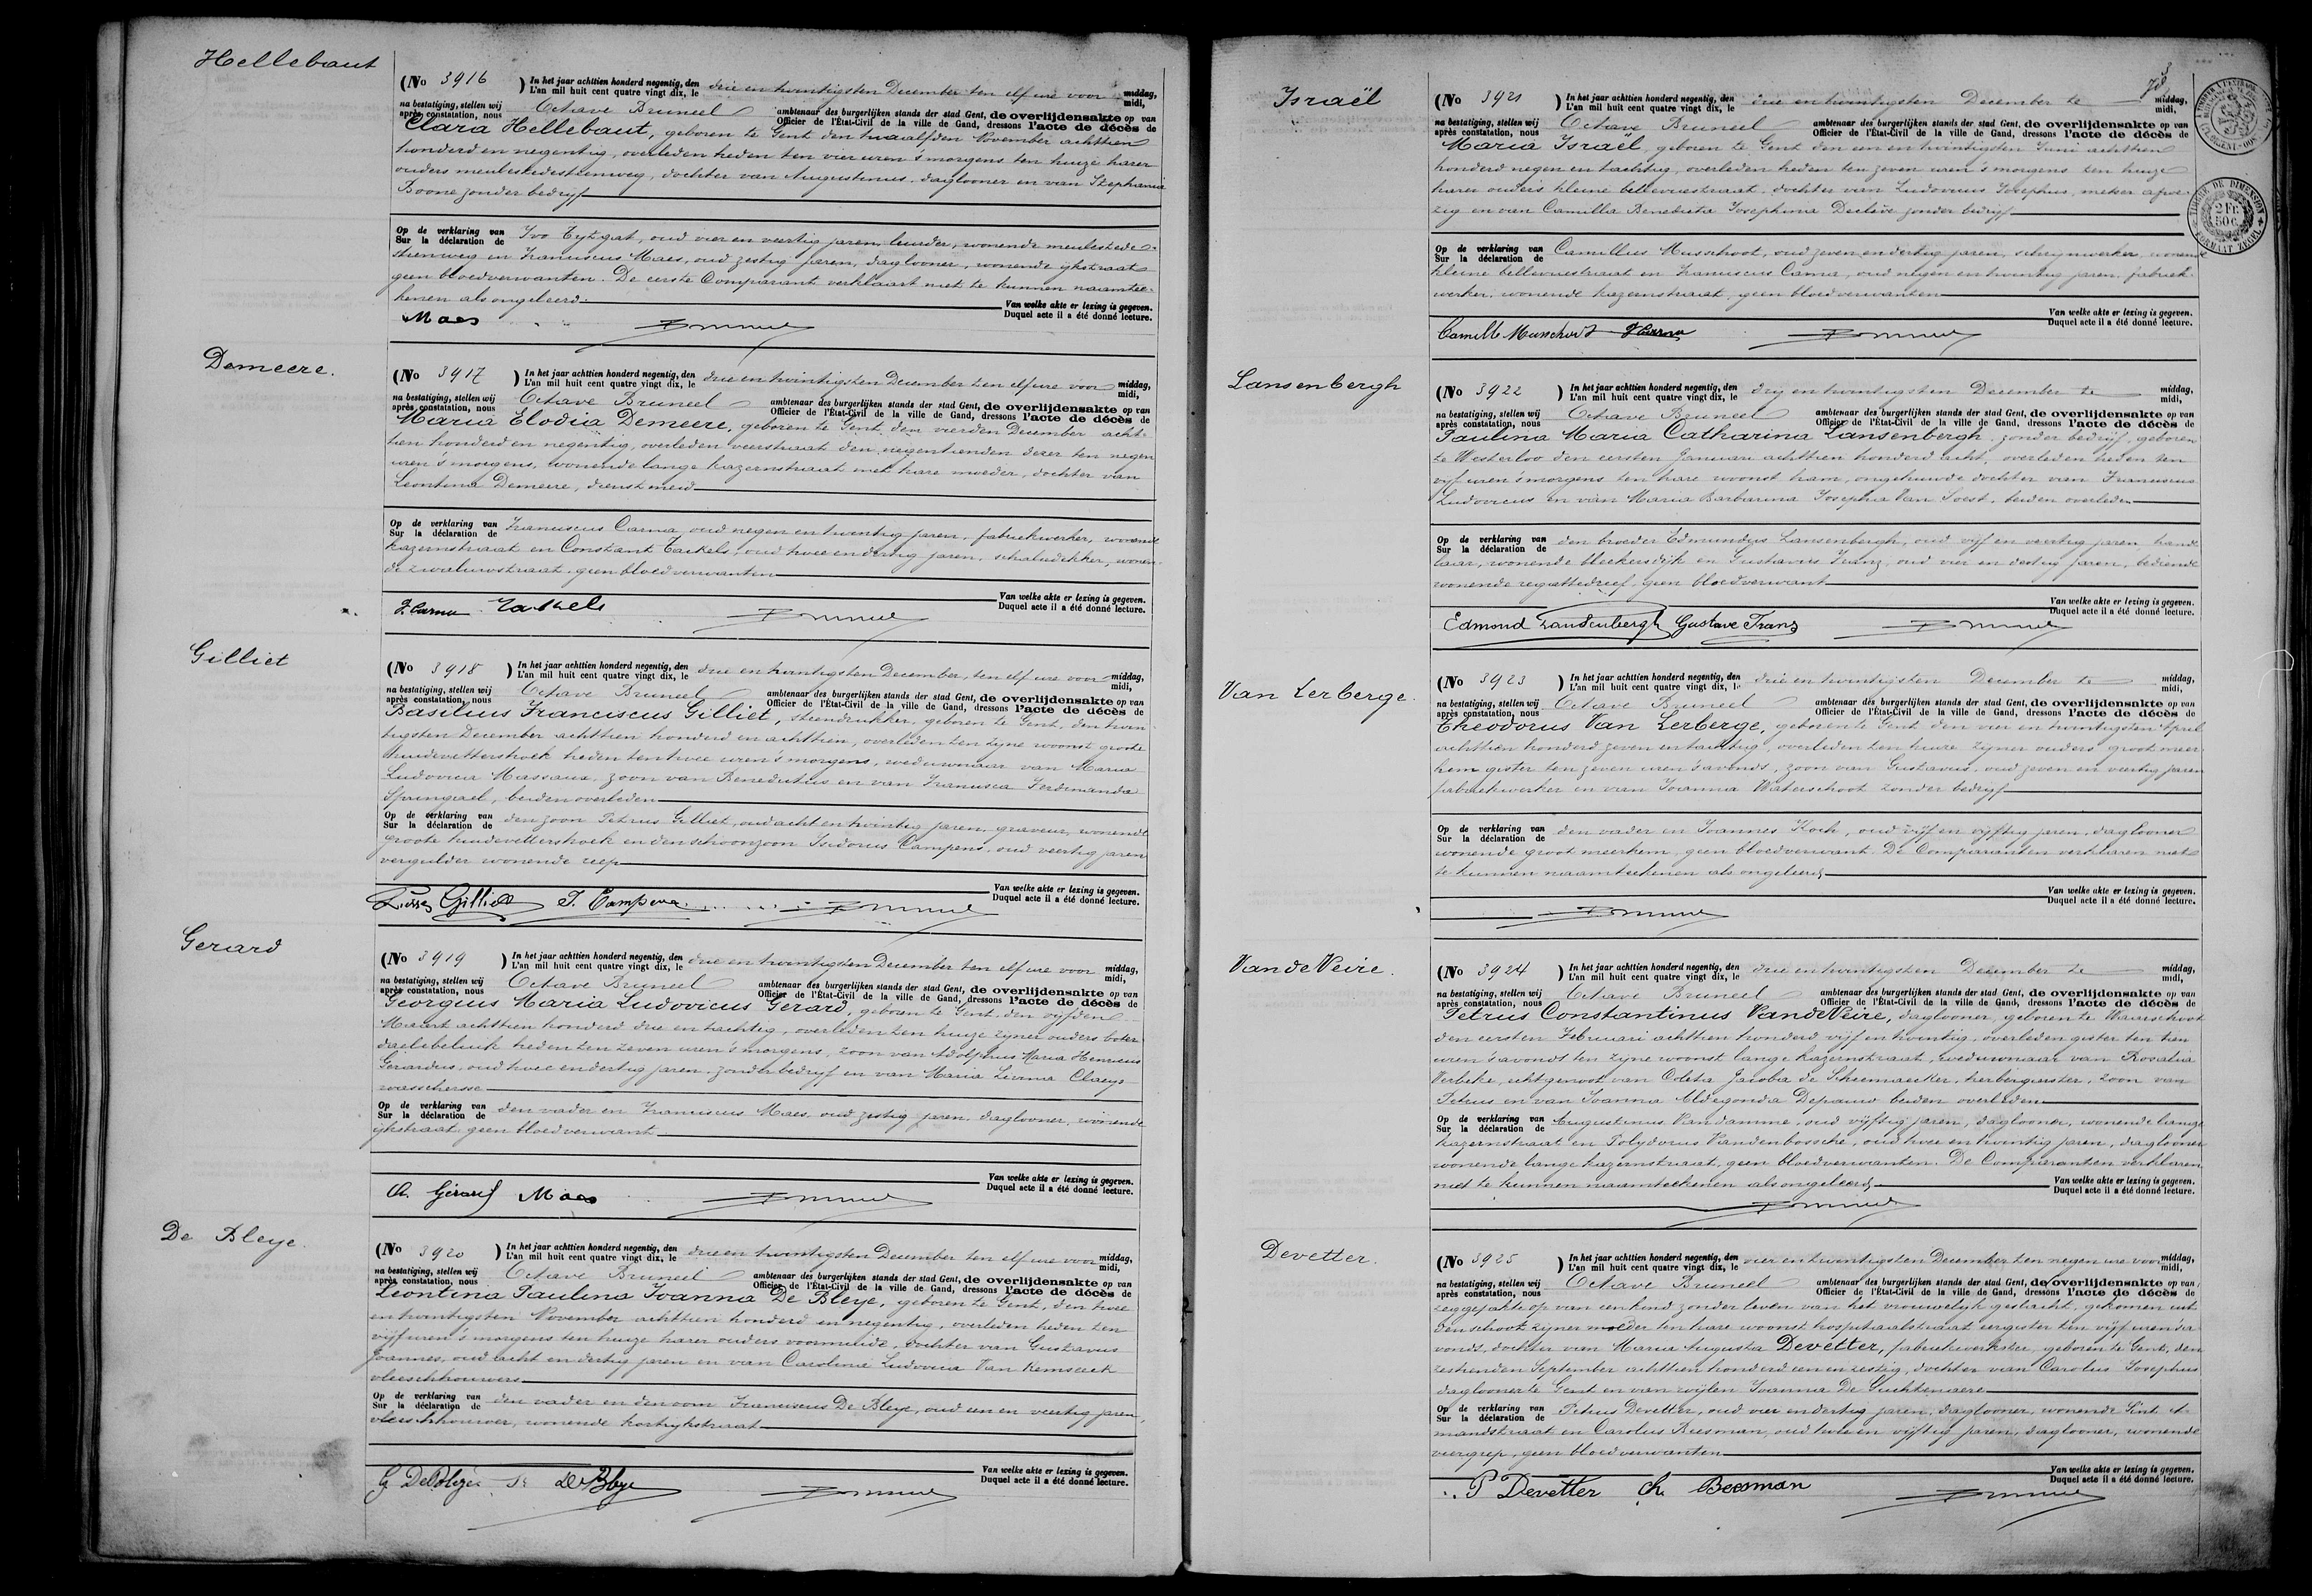 Hellebaut
(No 3916 ) In het jaar achttien honderd negentig, den drie en twintigsten December ten elf ure voor middag,
L'an mil huit cent quatre vingt dix, le midi,
na bestatiging, stellen wij Octave Bruneel ambtenaar des burgerlijken stands der stad Gent, de overlijdensakte op van
après constatation, nous Officier de l'État-Civil de la ville de Gand, dressons l'acte de décès de
Clara Hellebaut, geboren te Gent den twaalfden November achttien
honderd en negentig, overleden heden ten vier uren 's morgens ten huize harer
ouders meulestedesteenweg, dochter van Augustinus, daglooner en van Stephania
Boone zonder bedrijf
Op de verklaring van Ivo Tytgat, oud vier en veertig jaren, leurder, wonende meulestede-
Sur la déclaration de
steenweg en Franciscus Maes, oud zestig jaren, daglooner, wonende ijkstraat
geen bloedverwanten. De eerste Comparant verklaart niet te kunnen naamtee-
kenen als ongeleerd.
Van welke akte er lezing is gegeven.
Duquel acte il a été donné lecture.
Maes Bruneel
Demeere.
(No 3917 ) In het jaar achttien honderd negentig, den drie en twintigsten December ten elf ure voor middag,
L'an mil huit cent quatre vingt dix, le midi,
na bestatiging, stellen wij Octave Bruneel ambtenaar des burgerlijken stands der stad Gent, de overlijdensakte op van
après constatation, nous Officier de l'État-Civil de la ville de Gand, dressons l'acte de décès de
Maria Elodia Demeere, geboren te Gent den vierden December acht-
tien honderd en negentig, overleden veerstraat den negentienden dezer ten negen
uren 's morgens, wonende lange kazernstraat met hare moeder, dochter van
Leontina Demeere, dienstmeid
Op de verklaring van Franciscus Carma, oud negen en twintig jaren, fabriekwerker, wonende
Sur la déclaration de
kazernstraat en Constant Tackels, oud twee en dertig jaren, schaliedekker, wonen-
de zwaluwstraat, geen bloedverwanten
Van welke akte er lezing is gegeven.
Duquel acte il a été donné lecture.
F. Carma Tackels Bruneel
Gilliet
(No 3918 ) In het jaar achttien honderd negentig, den drie en twintigsten December, ten elf ure voor middag,
L'an mil huit cent quatre vingt dix, le midi,
na bestatiging, stellen wij Octave Bruneel ambtenaar des burgerlijken stands der stad Gent, de overlijdensakte op van
après constatation, nous Officier de l'État-Civil de la ville de Gand, dressons l'acte de décès de
Basilius Franciscus Gilliet, steendrukker, geboren te Gent, den twin-
tigsten December achttien honderd en achttien, overleden ten zijne woonst groote
Huidevettershoek heden ten twee uren 's morgens, weduwnaar van Maria
Ludovica Massaux, zoon van Benedictus en van Francisca Ferdinanda
beiden overleden
Op de verklaring van den zoon Petrus Gilliet, oud acht en twintig jaren, graveur, wonende
Sur la déclaration de
groote huidevettershoek en den schoonzoon Isidorus Campens, oud veertig jaren
vergulder wonende reep
Van welke akte er lezing is gegeven.
Duquel acte il a été donné lecture.
Gilliet Bruneel
Gerard
(No 3919 ) In het jaar achttien honderd negentig, den drie en twintigsten December ten elf ure voor middag,
L'an mil huit cent quatre vingt dix, le midi,
na bestatiging, stellen wij Octave Bruneel ambtenaar des burgerlijken stands der stad Gent, de overlijdensakte op van
après constatation, nous Officier de l'État-Civil de la ville de Gand, dressons l'acte de décès de
Georgius Maria Ludovicus Gerard, geboren te Gent, den vijfden
Maart achttien honderd drie en tachtig, overleden ten huize zijner ouders boter
daelebeluik heden ten zeven uren 's morgens, zoon van Adolphus Maria Henricus
Gerardus, oud twee en dertig jaren, zonder bedrijf en van Maria Livina Claeys
wasschersse
Op de verklaring van den vader en Franciscus Maes, oud zestig jaren, daglooner, wonende
Sur la déclaration de
ijkstraat geen bloedverwant
Van welke akte er lezing is gegeven.
Duquel acte il a été donné lecture.
A. Gérard Maes Bruneel
De Bleye
(No 3920 ) In het jaar achttien honderd negentig, den drie en twintigsten December ten elf ure voor middag,
L'an mil huit cent quatre vingt dix, le midi,
na bestatiging, stellen wij Octave Bruneel ambtenaar des burgerlijken stands der stad Gent, de overlijdensakte op van
après constatation, nous Officier de l'État-Civil de la ville de Gand, dressons l'acte de décès de
Leontina Paulina Joanna De Bleye, geboren te Gent, den twee
en twintigsten November achttien honderd en negentig, overleden heden ten
vijf uren 's morgens ten huize harer ouders voormuide, dochter van Gustavus
Joannes, oud acht en dertig jaren en van Carolina Ludovica Van Remsterk
vleeschhouwers
Op de verklaring van den vader en den oom Franciscus De Bleye, oud een en veertig jaren,
Sur la déclaration de
vleeschhouwer, wonende kortrijkstraat
Van welke akte er lezing is gegeven.
Duquel acte il a été donné lecture.
G DeBleye Fr DeBleye Bruneel
Israël
(No 3921 ) In het jaar achttien honderd negentig, den drie en twintigsten December te middag,
L'an mil huit cent quatre vingt dix, le midi,
na bestatiging, stellen wij Octave Bruneel ambtenaar des burgerlijken stands der stad Gent, de overlijdensakte op van
après constatation, nous Officier de l'État-Civil de la ville de Gand, dressons l'acte de décès de
Maria Israël, geboren te Gent den een en twintigsten Juni achttien
honderd negen en tachtig, overleden heden ten zeven uren 's morgens ten huize
harer ouders kleine bellevuestraat, dochter van Ludovicus Josephus, metser afwe-
zig en van Camilla Benedicta Josephina Declève zonder bedrijf
Op de verklaring van Camillus Musschoot, oud zeven en dertig jaren, schrijnwerker, wonende
Sur la déclaration de
kleine bellevuestraat en Franciscus Carma, oud negen en twintig jaren, fabriek-
werker, wonende kazernstraat, geen bloedverwanten
Van welke akte er lezing is gegeven.
Duquel acte il a été donné lecture.
Camille Musschoot F. Carma Bruneel
TIMBRE DE DIMENSION
2 Fr. 50 c.
FORMAAT ZEGEL
Lansenbergh
(No 3922 ) In het jaar achttien honderd negentig, den dry en twintigsten December te middag,
L'an mil huit cent quatre vingt dix, le midi,
na bestatiging, stellen wij Octave Bruneel ambtenaar des burgerlijken stands der stad Gent, de overlijdensakte op van
après constatation, nous Officier de l'État-Civil de la ville de Gand, dressons l'acte de décès de
Paulina Maria Catharina Lansenbergh, zonder bedrijf, geboren
te Westerloo den eersten Januari achttien honderd acht, overleden heden ten
vijf uren 's morgens ten hare woonst ham, ongehuwde dochter van Franciscus
Ludovicus en van Maria Barbarina Josephia Van Soest, beiden overleden
Op de verklaring van den broeder Edmundus Lansenbergh, oud vijf en veertig jaren, hande-
Sur la déclaration de
laar, wonende bleekersdijk en Gustavus Franz, oud vier en dertig jaren, bediende
wonende regattedreef, geen bloedverwant
Van welke akte er lezing is gegeven.
Duquel acte il a été donné lecture.
Edmond Lansenbergh Gustave Franz Bruneel
Van Lerberge.
(No 3923 ) In het jaar achttien honderd negentig, den drie en twintigsten December te middag,
L'an mil huit cent quatre vingt dix, le midi,
na bestatiging, stellen wij Octave Bruneel ambtenaar des burgerlijken stands der stad Gent, de overlijdensakte op van
après constatation, nous Officier de l'État-Civil de la ville de Gand, dressons l'acte de décès de
Theodorus Van Lerberge, geboren te Gent den vier en twintigsten April
achttien honderd zeven en tachtig, overleden ten huize zijner ouders groot meer-
hem gister ten zeven uren 's avonds, zoon van Gustavus, oud zeven en veertig jaren
fabriekwerker en van Joanna Waterschoot zonder bedrijf
Op de verklaring van den vader en Joannes Kock, oud vijf en vijftig jaren, daglooner
Sur la déclaration de
wonende groot meerhem, geen bloedverwant. De Comparanten verklaren niet
te kunnen naamteekenen als ongeleerd,
Van welke akte er lezing is gegeven.
Duquel acte il a été donné lecture.
Bruneel
VandeVeire.
(No 3924 ) In het jaar achttien honderd negentig, den drie en twintigsten December te middag,
L'an mil huit cent quatre vingt dix, le midi,
na bestatiging, stellen wij Octave Bruneel ambtenaar des burgerlijken stands der stad Gent, de overlijdensakte op van
après constatation, nous Officier de l'État-Civil de la ville de Gand, dressons l'acte de décès de
Petrus Constantinus VandeVeire, daglooner, geboren te Waarschoot
den eersten Februari achttien honderd vijf en twintig, overleden gister ten tien
uren 's avonds ten zijne woonst lange kazernstraat, weduwnaar van Rosalia
Verbeke, echtgenoot van Coleta Jacoba de Schremaecker, herbergierster, zoon van
Petrus en van Joanna Aldegonda Depauw beiden overleden
Op de verklaring van Augustinus Van damme, oud vijftig jaren, daglooner, wonende lange
Sur la déclaration de
kazernstraat en Polydorus Vandenbossche, oud twee en twintig jaren, daglooner
wonende lange kazernstraat, geen bloedverwanten. De Comparanten verklaren
niet te kunnen naamteekenen als ongeleerd,
Van welke akte er lezing is gegeven.
Duquel acte il a été donné lecture.
Bruneel
Devetter.
(No 3925 ) In het jaar achttien honderd negentig, den vier en twintigsten December ten negen ure voor middag,
L'an mil huit cent quatre vingt dix, le midi,
na bestatiging, stellen wij Octave Bruneel ambtenaar des burgerlijken stands der stad Gent, de overlijdensakte op van
après constatation, nous Officier de l'État-Civil de la ville de Gand, dressons l'acte de décès de
van een kind zonder leven van het vrouwelijk geslacht, gekomen uit
den schoot zijner moeder ten hare woonst hospitaalstraat eergister ten vijf uren 's a-
vonds, dochter van Maria Augusta Devetter, fabriekwerkster, geboren te Gent, den
zestienden September achttien honderd een en zestig, dochter van Carolus Josephus
daglooner te Gent en van wijlen Joanna De Vuchtenaere
Op de verklaring van Petrus Devetter, oud vier en dertig jaren, daglooner, wonende Sint A-
Sur la déclaration de
mandstraat en Carolus Beesman, oud twee en vijftig jaren, daglooner, wonende
geen bloedverwanten
Van welke akte er lezing is gegeven.
Duquel acte il a été donné lecture.
P Devetter Ch. Beesman Bruneel